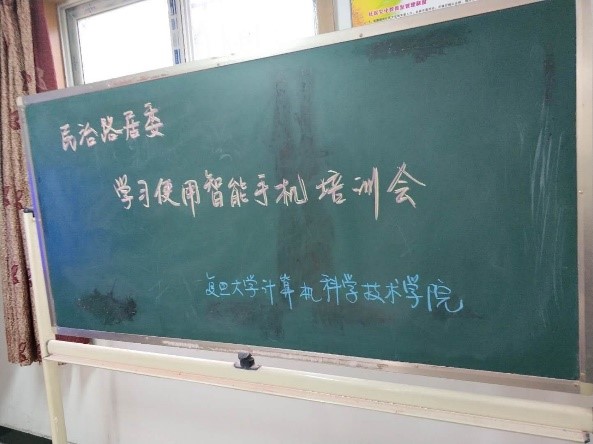 民治路居委
学习使用智能手机培训会
复旦大学计算机科学技术学院